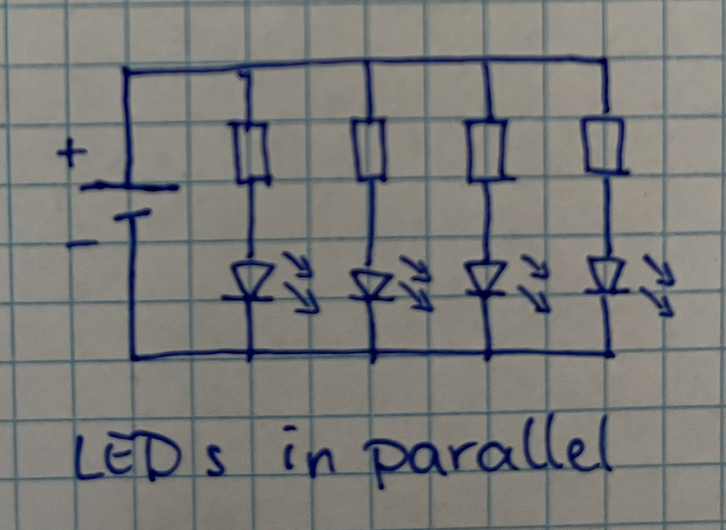 +
-
LEDs in parallel